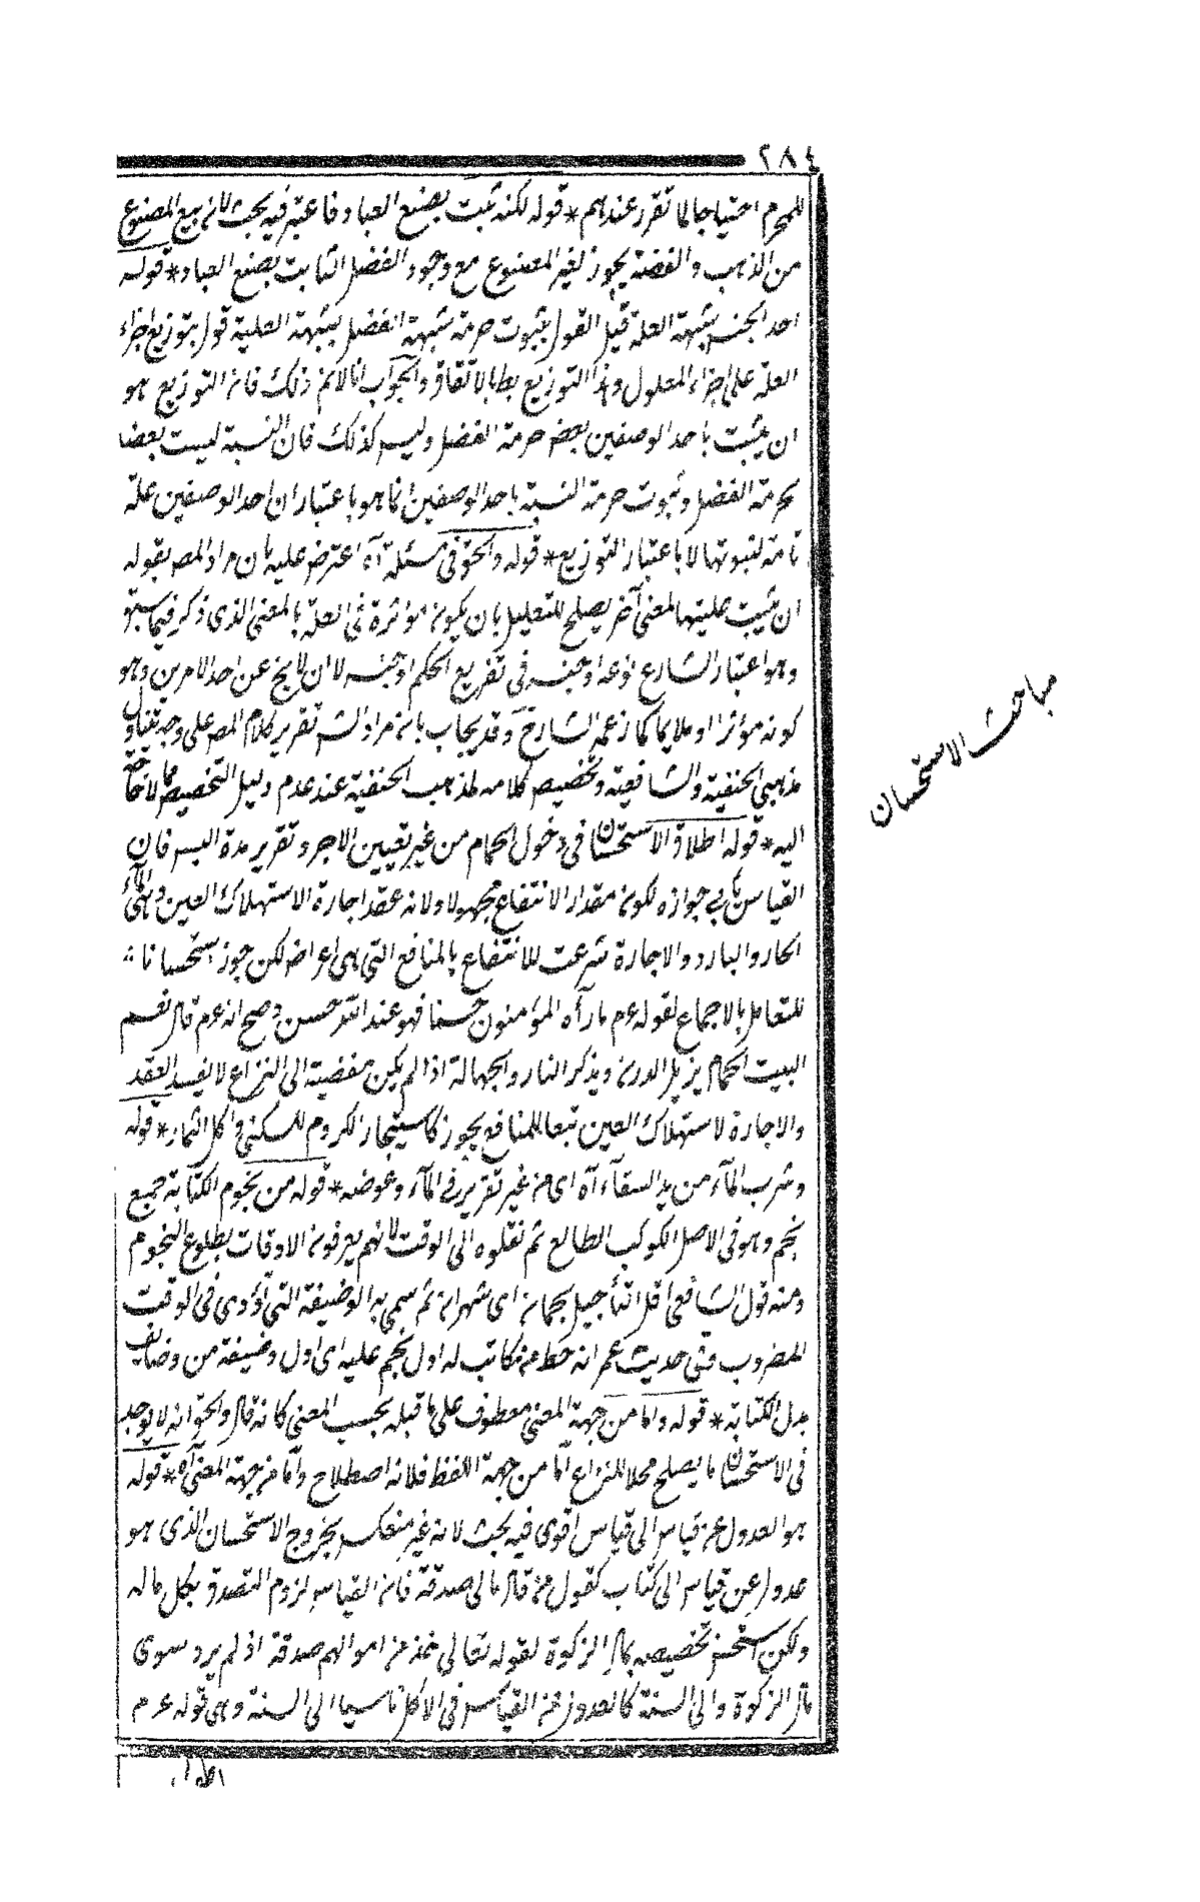 ٢٨٤
للمحرم احتياجا لما تقرر عندهم * قوله لكنه ثبت بصنع العباد فاعتبر فيه بحث لان بيع المصنوع
من الذهب والفضة يجوز لغير المصنوع مع وجود الفضل الثابت بصنع العباد * قوله
احد الجنس شبهة العلة قيل القول بثبوت حرمة شبهة الفضل بشبهة العلية قول بتوزيع اجزاء
العلة على اجزاء المعلول وهذا التوزيع بط بالاتفاق والجواب انا لانم ذلك فان التوزيع هو
ان يثبت باحد الوصفين بعض حرمة الفضل وليس كذلك فان النسبة ليست بعضا
بحرمة الفضل وثبوت حرمة النسبة باحد الوصفين انما هو باعتبار ان احد الوصفين علة
تامة لثبوتها لا باعتبار التوزيع * قوله والحق فى مسئلة آه اعترض عليه بان مراد المص بقوله
ان يثبت عليتها لمعنى آخر يصلح للتعليل بان يكون مؤثرة فى العلة بالمعنى الذى ذكر فيما سبق
وهو اعتبار الشارع نوعه او جنسه فى تفريع الحكم او جنسه لا ان لايخ عن احد الامرين وهو
كونه مؤثرا او ملايما كما زعمه الشارح وقد يجاب بان مراد الش تقرير كلام المص على وجه يتناول
مذهبى الحنفية والشافعية وتخصيص كلامه لمذهب الحنفية عند عدم دليل التخصيص مما لا حاجة
اليه * قوله اطلاق الاستحسان فى دخول الحمام من غير تعيين الاجر وتقرير مدة اللبس فان
القياس يأبى جوازه لكون مقدار الانتفاع مجهولا ولانه عقد اجارة الاستهلاك العين وهى الماء
الحار والبارد والاجارة شرعت للانتفاع بالمنافع التى هى اعراض لكن جوز استحسانا
للتعامل بالاجماع لقوله عم ما رآه المؤمنون حسنا فهو عند الله حسن وصح انه عم قال نعم
البيت الحمام يزيل الدرن ويذكر النار والجهالة اذا لم يكن مفضية الى النزاع لا يفسد العقد
والاجارة لاستهلاك العين تبعا للمنافع يجوز كاستيجار الكروم للسكنى واكل الثمار * قوله
وشرب الماء من يد السقاء آه اى من غير تقرير فى الماء وعوضه * قوله من نجوم الكتابة جمع
نجم وهو فى الاصل الكوكب الطالع ثم نقلوه الى الوقت لانهم يعرفون الاوقات بطلوع النجوم
ومنه قول الشافعى اقل التأجيل نجمان اى شهران ثم سمى به الوضيفة التى تؤدى فى الوقت
المضروب وفى حديث عمر انه حط عن مكاتب له اول نجم عليه اى اول وضيفة من وضايف
بدل الكتابة * قوله واما من جهة المعنى معطوف على ما قبله بحسب المعنى كانه قال والحق انه لا يوجد
فى الاستحسان ما يصلح محلا للنزاع اما من جهة اللفظ فلانه اصطلاح واما من جهة المعنى آه * قوله
هو العدول عن قياس الى قياس اقوى فيه بحث لانه غير منعكس بخروج الاستحسان الذى هو
عدول عن قياس الى كتاب كقول من قال مالى صدقة فان القياس لزوم التصدق بكل ماله
ولكن استحسن تخصيصه بمال الزكوة لقوله تعالى خذ من اموالهم صدقة اذ لم يرد سوى
مال الزكوة والى السنة كالعدول عن القياس فى الاكل ناسيا الى السنة وهى قوله عم
مباحث الاستحسان